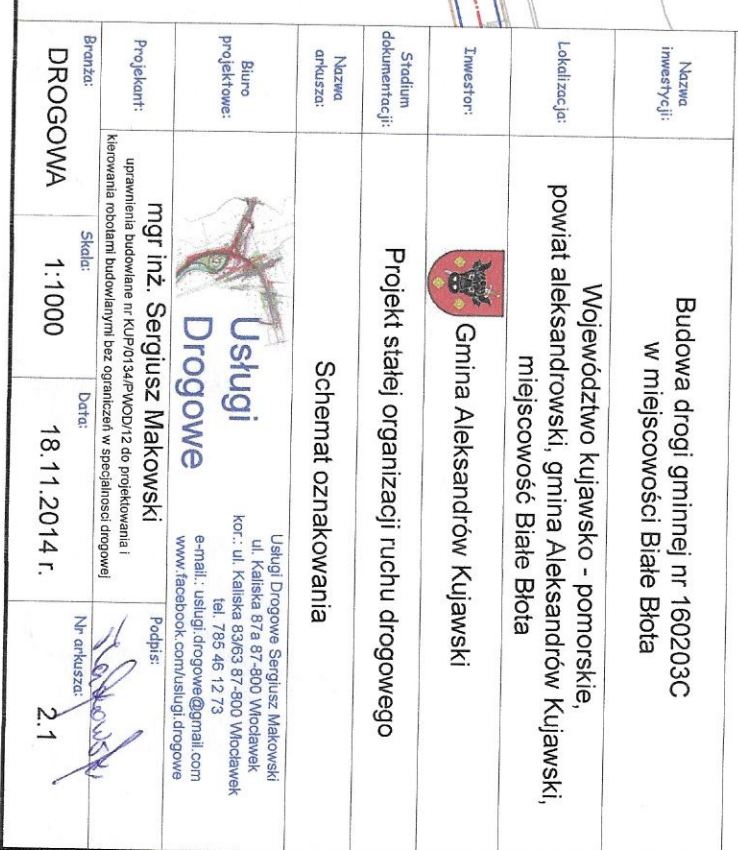 Nazwa
inwestycji:
Budowa drogi gminnej nr 160203C
w miejscowości Białe Błota
Lokalizacja:
Województwo kujawsko - pomorskie,
powiat aleksandrowski, gmina Aleksandrów Kujawski,
miejscowość Białe Błota
Inwestor:
Gmina Aleksandrów Kujawski
Stadium
dokumentacji:
Projekt stałej organizacji ruchu drogowego
Nazwa
arkusza:
Schemat oznakowania
Biuro
projektowe:
Usługi
Drogowe
Usługi Drogowe Sergiusz Makowski
ul. Kaliska 87a 87-800 Włocławek
kor.: ul. Kaliska 83/63 87-800 Włocławek
tel. 785 46 12 73
e-mail.: uslugi.drogowe@gmail.com
www.facebook.com/uslugi.drogowe
Projekant:
mgr inż. Sergiusz Makowski
uprawnienia budowlane nr KUP/0134/PWOD/12 do projektowania i
kierowania robotami budowlanymi bez ograniczeń w specjalnosci drogowej
Podpis:
Makowski
Branża:
DROGOWA
Skala:
1:1000
Data:
18.11.2014 r.
Nr arkusza:
2.1